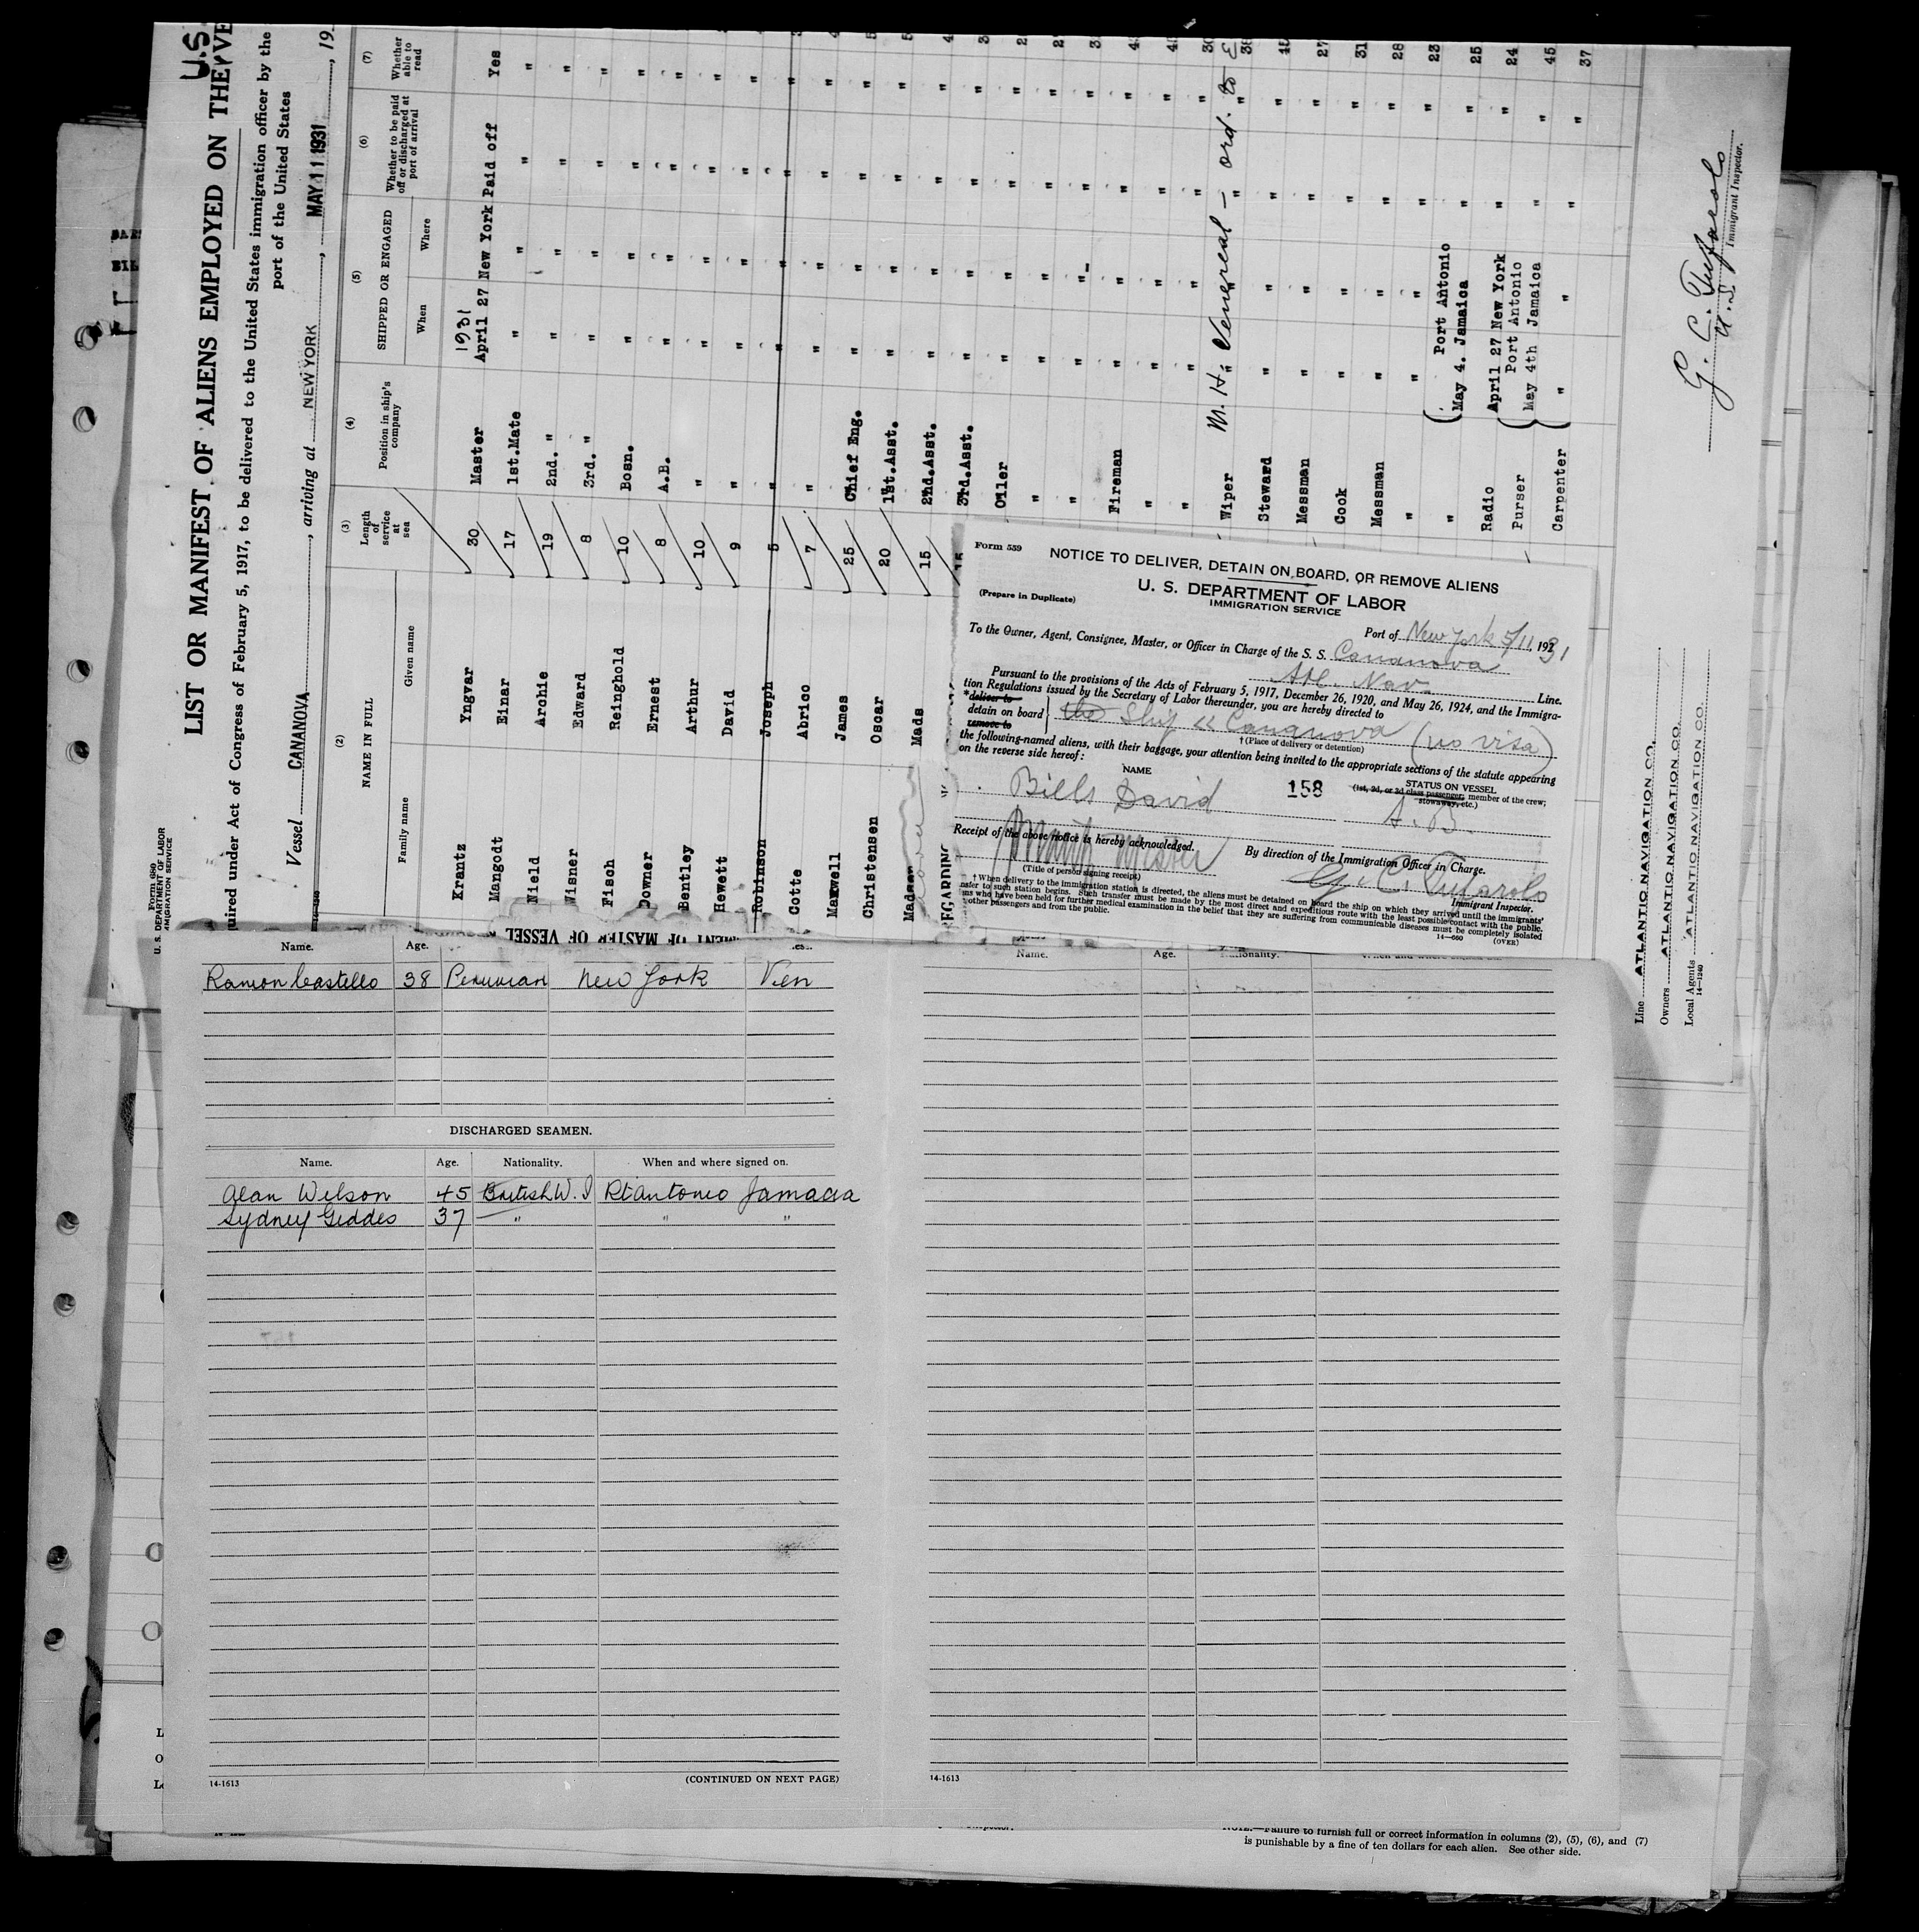 U.S.
LIST OR MANIFEST OF ALIENS EMPLOYED ON THE VE
uired under Act of Congress of February 5, 1917, to be delivered to the United States immigration officer by the
port of the United States
Vessel CANANOVA, arriving at NEW YORK, MAY 11 1931, 19
Form 680
U. S. DEPARTMENT OF LABOR
IMMIGRATION SERVICE
(2) (3) (4) (5) (6) (7)
NAME IN FULL
Length of service at sea
Position in ship's company
SHIPPED OR ENGAGED
Whether to be paid off or discharged at port of arrival
Whether able to read
Family name Given name When Where
1931
Krantz Yngvar 30 Master April 27 New York Paid off Yes
Mangodt Einar 17 1st.Mate " " " "
Nield Archie 19 2nd. " " " " "
Wisner Edward 8 3rd. " " " " "
Fisch Reinghold 10 Bosn. " " " "
Downer Ernest 8 A.B. " " " "
Bentley Arthur 10 " " " " "
Hewett David 9 " " " " "
Robinson Joseph 5 " " " " "
Cotte Abrico 7 " " " " "
Maxwell James 25 Chief Eng. " " " "
Christensen Oscar 20 1st.Asst. " " " "
Madsen Mads 15 2nd.Asst. " " " "
15 3rd.Asst. " " " "
Oiler " " " "
" " " " "
" " " " "
Fireman " " " "
" " " " "
" " " " "
Wiper " " " " 30
M. H. Venereal — ord. to E
Steward " " " " 38
Messman " " " " 45
Cook " " " " 27
Messman " " " " 31
" " " " " 28
" Port Antonio
May 4. Jamaica " " 23
Radio April 27 New York " " 25
Purser Port Antonio
May 4th Jamaica " " 24
Carpenter " " " " 45
37
G. C. Tufarolo
U. S.
Immigrant Inspector.
Line ATLANTIC NAVIGATION CO.
Owners ATLANTIC NAVIGATION CO.
Local Agents ATLANTIC NAVIGATION CO.
14—1240
Form 559
NOTICE TO DELIVER, DETAIN ON BOARD, OR REMOVE ALIENS
U. S. DEPARTMENT OF LABOR
IMMIGRATION SERVICE
(Prepare in Duplicate)
Port of New York 5/11, 1931
To the Owner, Agent, Consignee, Master, or Officer in Charge of the S. S. Cananova
Atl. Nav. Line.
Pursuant to the provisions of the Acts of February 5, 1917, December 26, 1920, and May 26, 1924, and the Immigra-
tion Regulations issued by the Secretary of Labor thereunder, you are hereby directed to
*deliver to
detain on board
remove to
the Ship SS Cananova (no visa)
†(Place of delivery or detention)
the following-named aliens, with their baggage, your attention being invited to the appropriate sections of the statute appearing
on the reverse side hereof:
NAME STATUS ON VESSEL
(1st, 2d, or 3d class passenger, member of the crew;
stowaway, etc.)
Bills David 158 A. B.
Receipt of the above notice is hereby acknowledged.
Master
(Title of person signing receipt)
By direction of the Immigration Officer in Charge.
G. C. Tufarolo
Immigrant Inspector.
†When delivery to the immigration station is directed, the aliens must be detained on board the ship on which they arrived until the immigrants'
nsfer to such station begins. Such transfer must be made by the most direct and expeditious route with the least possible contact with the public.
ms who have been held for further medical examination in the belief that they are suffering from communicable diseases must be completely isolated
other passengers and from the public.
14—660 (OVER)
EGARDING
MENT OF MASTER OF VESSEL
Name. Age.
Ramon Castello 38 Peruvian New York Ven
DISCHARGED SEAMEN.
Name. Age. Nationality. When and where signed on.
Alan Wilson 45 British W. I Pt Antonio Jamacia
Sydney Geddes 37 " " "
14-1613 (CONTINUED ON NEXT PAGE)
Name. Age. Nationality.
14-1613
NOTE.—Failure to furnish full or correct information in columns (2), (5), (6), and (7)
is punishable by a fine of ten dollars for each alien. See other side.